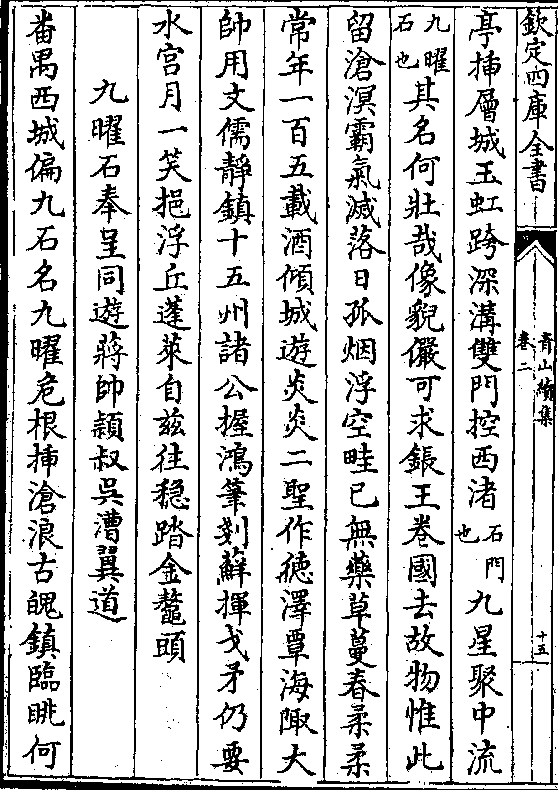 欽定四庫全書
青山續集
卷二
十五
亭揷層城玉虹跨深溝雙門控西渚石門也九星聚中流
九曜石也其名何壯哉像貌儼可求鋹王卷國去故物惟此
留滄溟霸氣滅落日孤烟浮空畦已無藥草蔓春柔柔
常年一百五載酒傾城遊炎炎二聖作德澤覃海陬大
帥用文儒靜鎮十五州諸公握鴻筆剗蘚揮戈矛仍要
水宫月一笑挹浮丘蓬萊自兹往穏踏金鼇頭
九曜石奉呈同遊蔣帥穎叔吳漕翼道
畨禺西城偏九石名九曜危根揷滄浪古魄鎮臨眺何